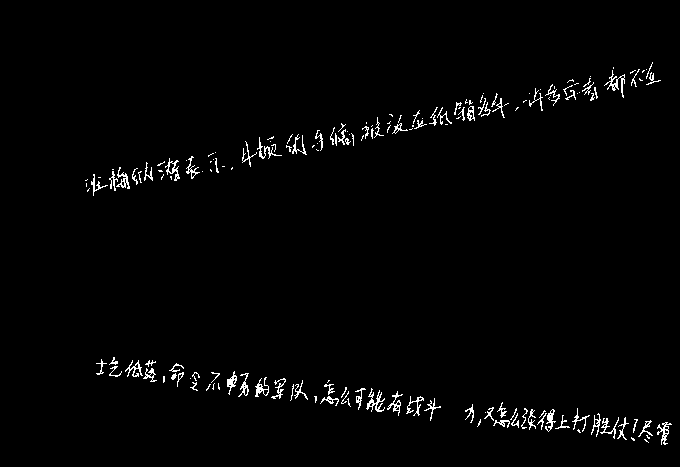 梅纳潜表示,牛顿的手稿被放在纸箱多年,许多学者都不知
士气低落,命令不畅的军队,怎么可能有战斗力,又怎么谈得上打胜仗!尽管